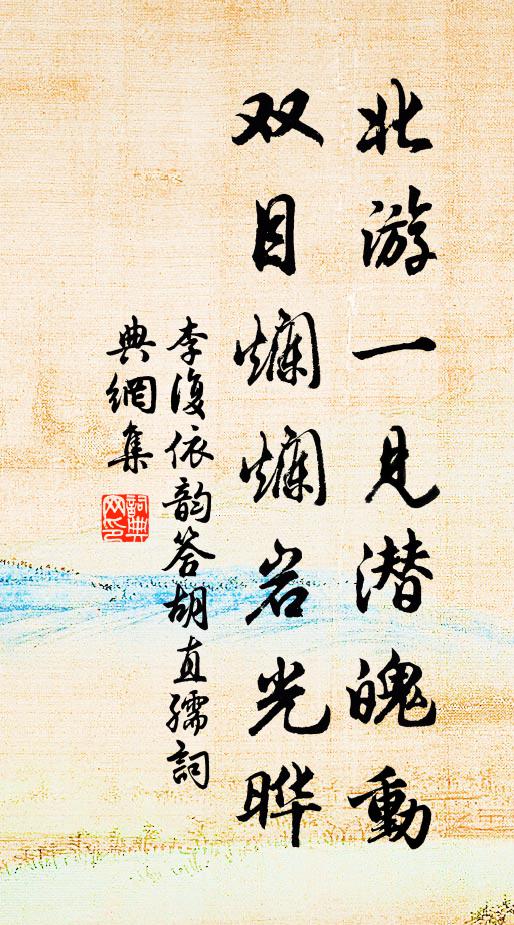 北游一见潜魄動
双目爛爛岩光晔
李復依韵答胡直孺詞
典網集
詞典網印